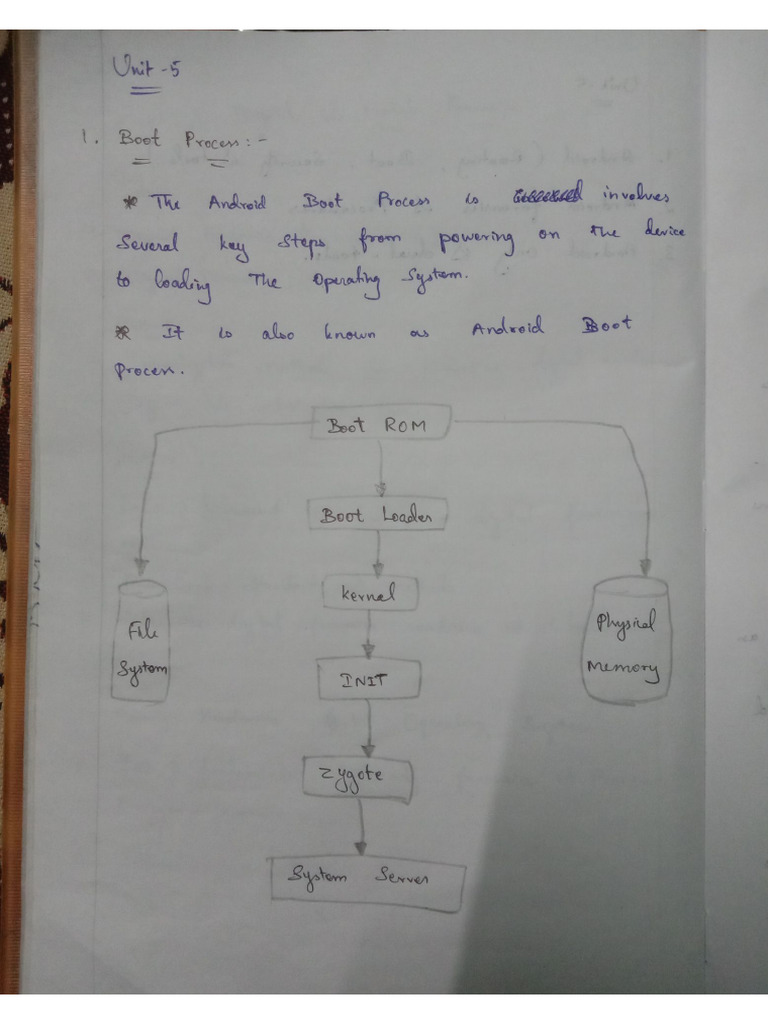 Unit -5
1. Boot Process:-
* The Android Boot Process is involves
Several key Steps from powering on the device
to loading The Operating System.
* It is also known as Android Boot
Process.
Boot ROM
Boot Loader
Kernel
File
System
Physical
Memory
INIT
Zygote
System Server